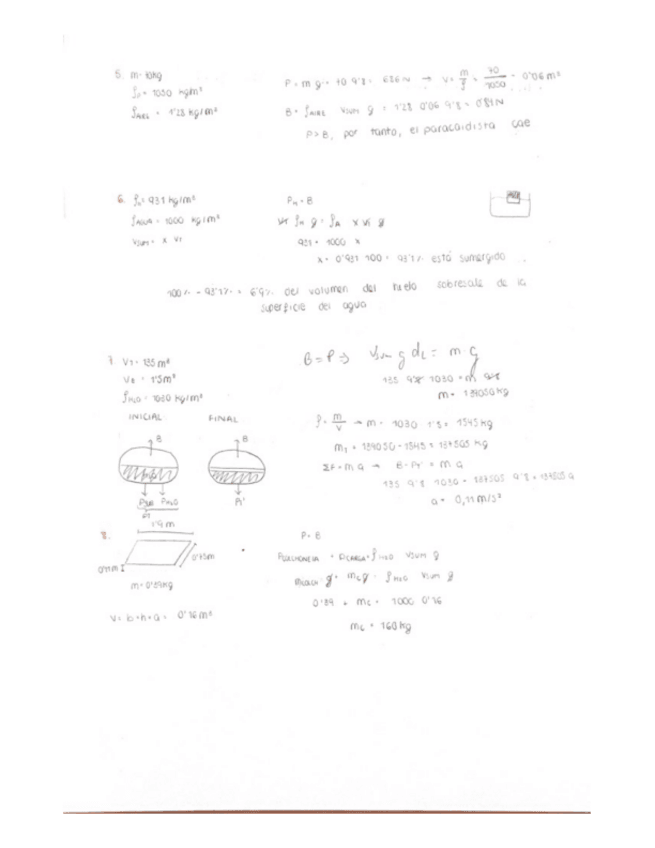 5. m= 70kg
ρP= 1050 kg/m³
ρAIRE = 1'28 kg/m³
P= m g= 70 9'8= 686N → V= m/ρ = 70/1050 = 0'06 m³
B= ρAIRE Vsum g = 1'28 0'06 9'8 = 0'81N
P>B, por tanto, el paracaidista cae
6. ρH= 931 kg/m³
ρAGUA = 1000 kg/m³
Vsum = x VT
PH = B
VT ρH g = ρA x VT g
931 = 1000 x
x= 0'931 100 = 93'1% está sumergido
100% - 93'1% = 6'9% del volumen del hielo sobresale de la
superficie del agua
7. VT= 135 m³
VB = 1'5m³
ρH2O = 1030 kg/m³
B=P ⇒ Vsum g dL = m·g
135 9'8 1030 = m 9'8
m= 139050 kg
INICIAL FINAL
ρ= m/V → m= 1030 1'5 = 1545 kg
mT = 139050-1545 = 137505 kg
ΣF=m a → B-PT' = m a
135 9'8 1030 - 137505 9'8 = 137505 a
a= 0,11 m/s²
B B
PSUB PH2O PT'
PT
8.
1'9 m
0'75m
0'11m
m= 0'89kg
V= b·h·a = 0'16 m³
P= B
PCOLCHONETA + PCARGA= ρH2O Vsum g
mCOLCH g + mC g = ρH2O Vsum g
0'89 + mC = 1000 0'16
mC = 160 kg